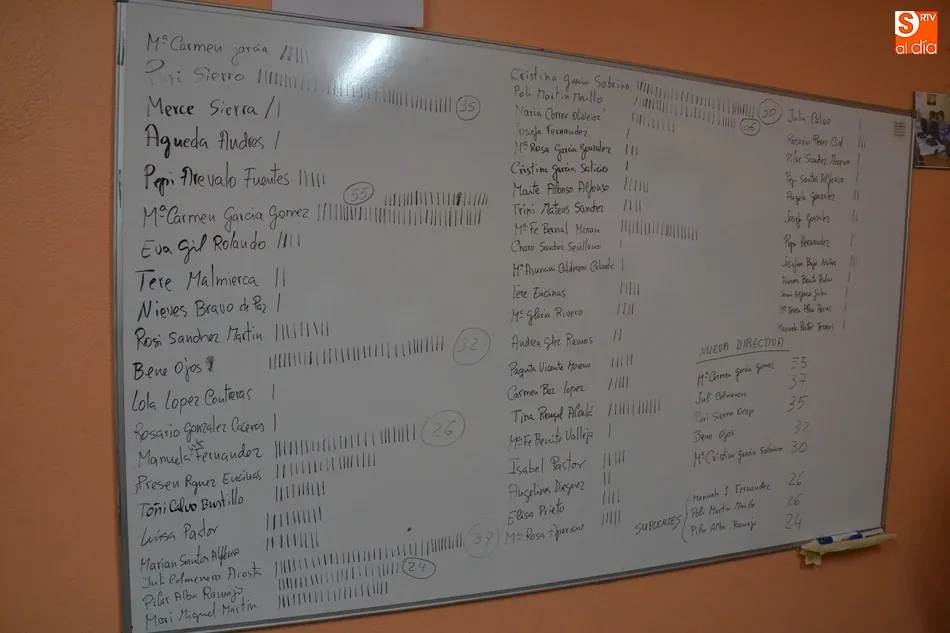 S RTV
al día
Mª Carmen García
Puri Sierro
35
Merce Sierra
Agueda Andres
Pepi Arevalo Fuentes
55
Mª Carmen Garcia Gomez
Eva Gil Rolando
Tere Malmierca
Nieves Bravo de Paz
Rosi Sandrez Martin
Bene Ojos
32
Lola Lopez Contreras
Rosario Gonzalez Caceros
26
Manuela Fernandez
Presen Rguez Encinas
Toñi Calvo Bustillo
Luisa Pastor
Marian Santos Alfonso
37
Juli Colmenero Acosta
24
Pilar Alba Ramajo
Mari Miguel Martin
Cristina Garcia Sobrino
30
Poli Martin Maillo
26
Maria Correr Oliveira
Josefa Fernandez
Mª Rosa Garcia Gonzalez
Cristina Garcia Salicio
Maite Alonso Alfonso
Trini Mateos Sandrez
Mª Fe Bernal Moran
Charo Sandrez Sevillano
Mª Asuncion Calderero
Tere Encinas
Mª Gloria Rivero
Andrea Glez Ramos
Paquita Vicente Moreno
Carmen Baz Lopez
Tina Rengel Alcalá
Mª Fe Benito Vallejo
Isabel Pastor
Angelina
Elisa Prieto
Mª Rosa Aparicio
Julia Calvo
Rosario Perez Cid
Pilar Sandrez Moreno
Pepi Santos Alfonso
Angela Gonzalez
Josefa Gonzalez
Pepi Hernandez
Josefina
Benito
Alfonso
Mª Teresa
Manuela Pastor
NUEVA DIRECTIVA
Mª Carmen Garcia Gomez 55
Juli Colmenero 37
Puri Sierro Orejo 35
Bene Ojos 32
Mª Cristina Garcia Sobrino 30
SUPLENTES
Manuela J. Fernandez 26
Poli Martin Maillo 26
Pilar Alba Ramajo 24